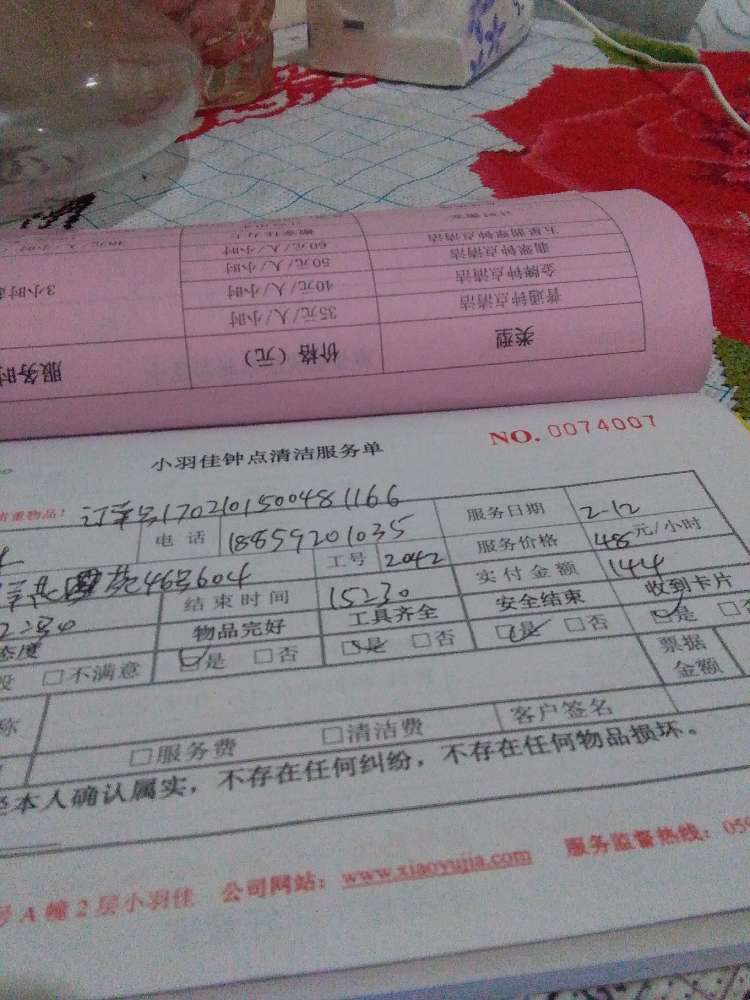 3小时
60元/人/小时
五星翡翠钟点清洁
50元/人/小时
翡翠钟点清洁
40元/人/小时
金牌钟点清洁
35元/人/小时
普通钟点清洁
服务时
价格（元）
类型
小羽佳钟点清洁服务单
NO. 0074007
贵重物品！
订单号1702101500481166
电话
18859201035
服务日期
2-12
46号604
工号
2042
服务价格
48元/小时
结束时间
15:30
实付金额
144
态度
物品完好
工具齐全
安全结束
收到卡片
□不满意
☑是 □否
☑是 □否
☑是 □否
☑是
称
票据
金额
□服务费
□清洁费
客户签名
本人确认属实，不存在任何纠纷，不存在任何物品损坏。
号A幢2层小羽佳
公司网站：www.xiaoyujia.com
服务监督热线：059